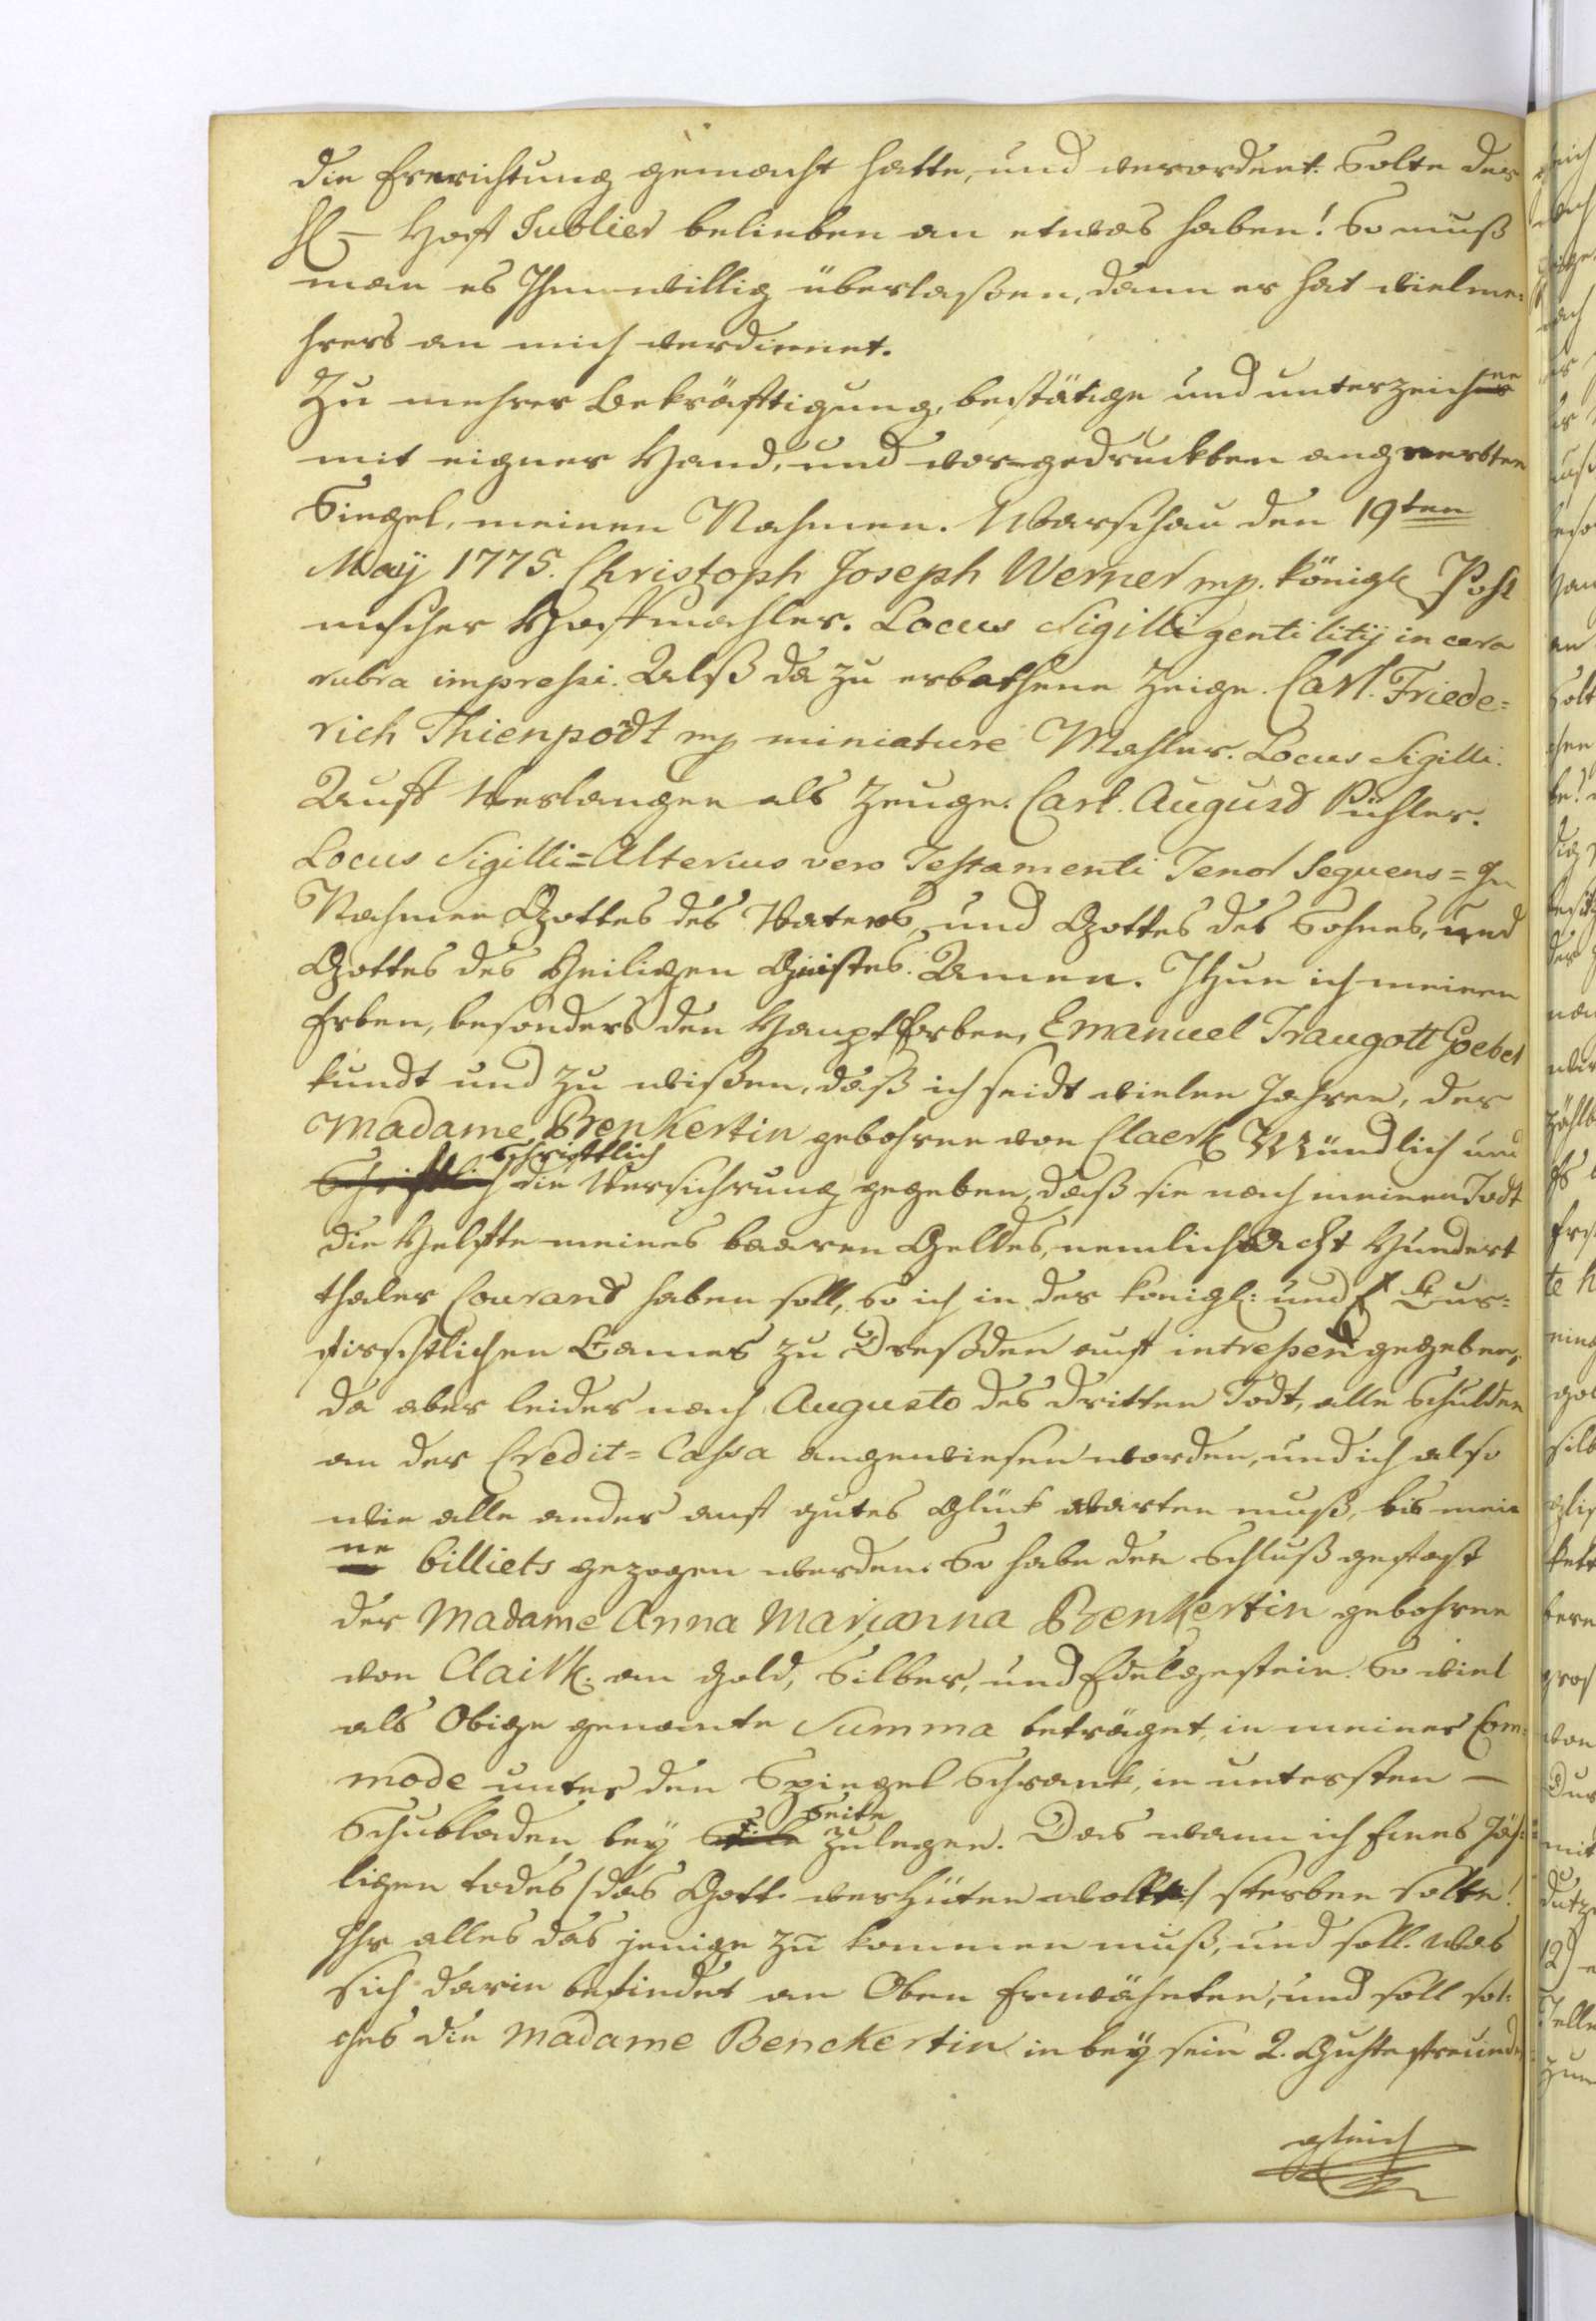 die Einrichtung gemacht hatte, und verordent. Solte der
H– Hoff Jublier belieben an etwas haben! So muß
man es Ihm willig überlaßen, dann er hat vielme:
hrers an mich verdienet.
Zu mehrer Bekräfftigung, bestätige und unterzeichne
mit eigner Hand, und vor-gedruckten angeerbten
Siegel, meinen Nahmen. Warschau den 19ten
Maÿ 1775. Christoph Joseph Werner mp. königl Pohl
nischer Hoffmahler. Locus Sigilli gentilitij in cera
rubra impressi. Alß da zu erbethene Zeige. Carl. Friede=
rich Thienpodt mp miniature Mahler. Locus Sigilli.
Auff Verlangen als Zeuge. Carl. Augusd Pichler.
Locus Sigilli = Alterius vero Testamenti Tenor Sequens = In
Nahmen Gottes des Vaters, und Gottes des Sohnes, und
Gottes des Heiligen Geistes. Amen. Thue ich meinen
Erben, besonders den Haupt Erben, Emanuel Traugott Goebel
kundt und zu wißen, daß ich seidt vielen Jahren, der
Madame Benkertin gebohrne von Claerk Mündlich und
schriftlich die Versichrung gegeben, daß sie nach meinen Todt
die Helffte meines baaren Geldes, nemlich Acht Hundert
thaler Courant haben soll, so ich in der königl: und Cur=
firschtlichen Camer zu Dreßden auff intressen gegeben,
da aber leider nach Augusto des dritten Todt, alle Schulden
an der Credit=Cassa angewiesen worden, und ich also
wie alle ander auff gutes Glück warten muß, bis mei
ne billiets gezogen werden. So habe den Schluß gefast
der Madame Anna Marianna Benkertin gebohrne
von Clairk. an Gold, Silber, und Edelgestein. So viel
als Obige genante Summa beträget, in meiner Com=
mode unter den Spiegel Schrank, in untersten –
Schubladen, bey Seite zulegen. Das wann ich eines Jäh=
ligen todes / das Gott verhüten wolle / sterben solte!
Ihr alles das jenige zu kommen muß, und soll. was
sich darin befindet an Oben Erwähnten, und soll sol:
ches die Madame Benckertin in bey sein 2. Guhte freunde
gleich